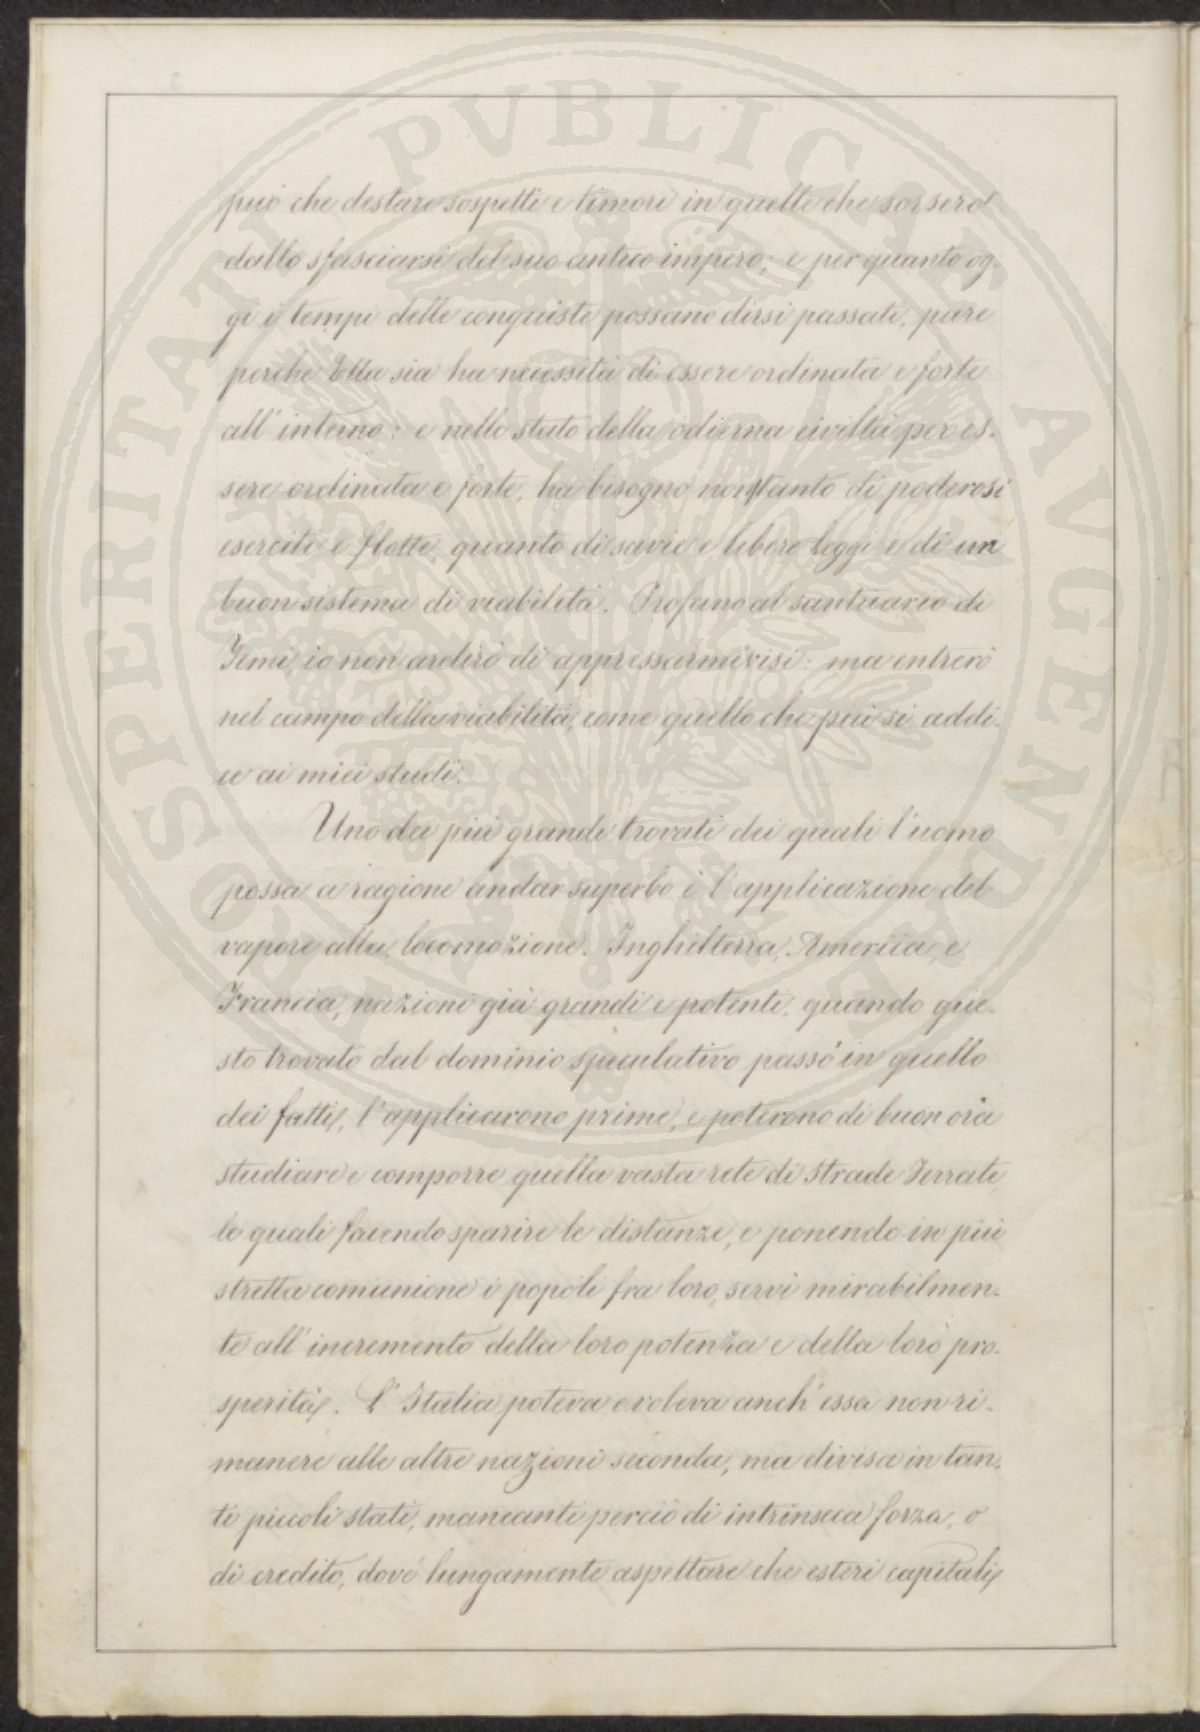 PVBLICAE AVGENDAE
PROSPERITATI
può che destare sospetti e timori in quelle che sorsero
dallo sfasciarsi del suo antico impero; e per quanto og-
gi i tempi delle conquiste possano dirsi passati, pure
perche Ella sia ha necessità di essere ordinata e forte
all'interno: e nello stato della odierna civiltà per es-
sere ordinata e forte, ha bisogno non tanto di poderosi
eserciti e flotte, quanto di savie e libere leggi e di un
buon sistema di viabilità. Profano al santuario di
Temi, io non ardirò di appressarmivisi: ma entrerò
nel campo della viabilità, come quello che più si addi-
ce ai miei studi.
Uno dei più grandi trovati dei quali l'uomo
possa a ragione andar superbo è l'applicazione del
vapore alla locomozione. Inghilterra, America, e
Francia, nazioni già grandi e potenti, quando que-
sto trovato dal dominio speculativo passò in quello
dei fatti, l'applicarono prime, e poterono di buon ora
studiare e comporre quella vasta rete di Strade Ferrate,
le quali facendo sparire le distanze, e ponendo in più
stretta comunione i popoli fra loro, servì mirabilmen-
te all'incremento della loro potenza e della loro pro-
sperità. L'Italia poteva e voleva anch'essa non ri-
manere alle altre nazioni seconda, ma divisa in tan-
ti piccoli stati, mancanti perciò di intrinseca forza, o
di credito, dovè lungamente aspettare che esteri capitali